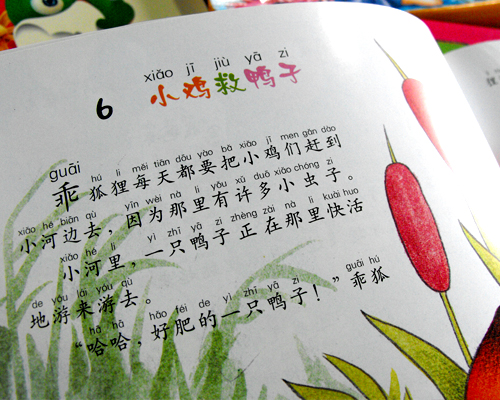 xiǎo jī jiù yā zi
6 小鸡救鸭子
guāi hú li měi tiān dōu yào bǎ xiǎo jī men gǎn dào
乖狐狸每天都要把小鸡们赶到
xiǎo hé biān qù yīn wèi nà lǐ yǒu xǔ duō xiǎo chóng zi
小河边去，因为那里有许多小虫子。
xiǎo hé lǐ yì zhī yā zi zhèng zài nà lǐ kuài huó
小河里，一只鸭子正在那里快活
de yóu lái yóu qù
地游来游去。
hā hā hǎo féi de yì zhī yā zi guāi hú
“哈哈，好肥的一只鸭子！”乖狐